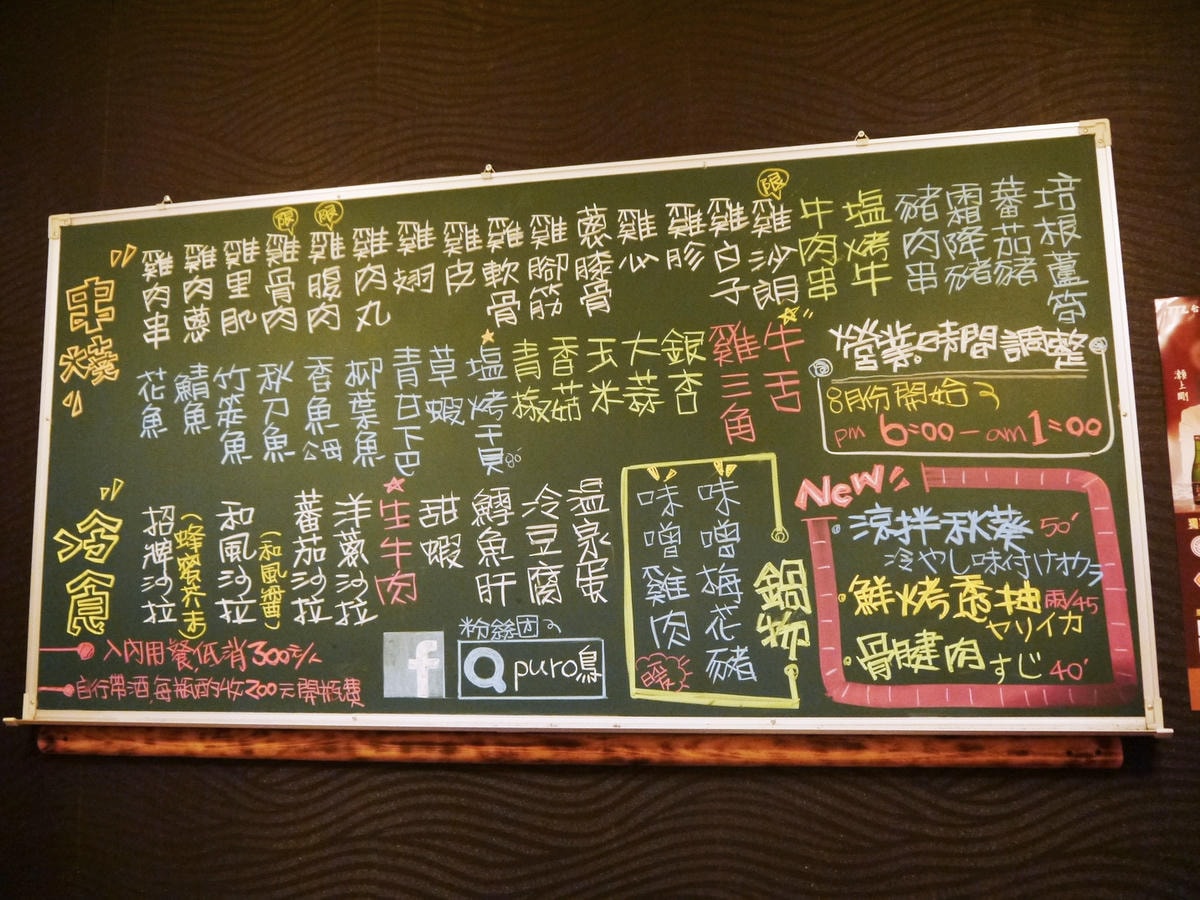 串燒
雞肉串
雞肉蔥
雞里肌
限
雞骨肉
限
雞腹肉
雞肉丸
雞翅
雞皮
雞軟骨
雞腳筋
蔥膝骨
雞心
雞胗
雞白子
限
雞沙朗
牛肉串
塩烤牛
豬肉串
霜降豬
蕃茄豬
培根蘆筍
花魚
鯖魚
竹筴魚
秋刀魚
香魚母
柳葉魚
青甘下巴
草蝦
塩烤干貝 80
青椒
香菇
玉米
大蒜
銀杏
雞三角
牛舌
營業時間調整
8月份開始
pm 6:00 - am 1:00
冷食
招牌沙拉
(蜂蜜芥末)
和風沙拉
(和風醬)
蕃茄沙拉
洋蔥沙拉
生牛肉
甜蝦
鱈魚肝
冷豆腐
溫泉蛋
鍋物
味噌梅花豬
味噌雞肉
暖
New
涼拌秋葵 50'
冷やし味付けオクラ
鮮烤透抽 兩/45
ヤリイカ
骨腱肉 すじ 40'
入內用餐低消300元/人
自行帶酒,每瓶酌收200元開瓶費
f
粉絲団
puro鳥
瀨上剛